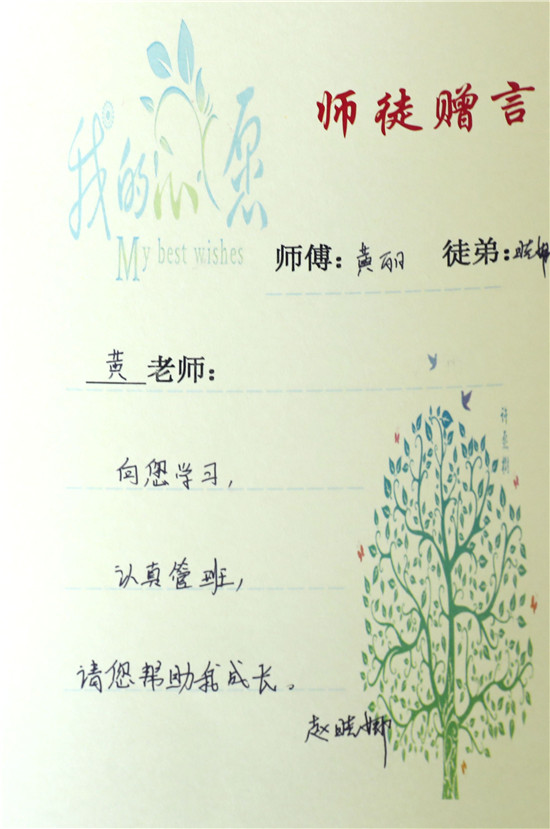 师徒赠言
我的心愿
My best wishes
师傅：黄丽 徒弟：晓娜
黄老师：
许愿树
向您学习，
认真管班，
请您帮助我成长。
赵晓娜